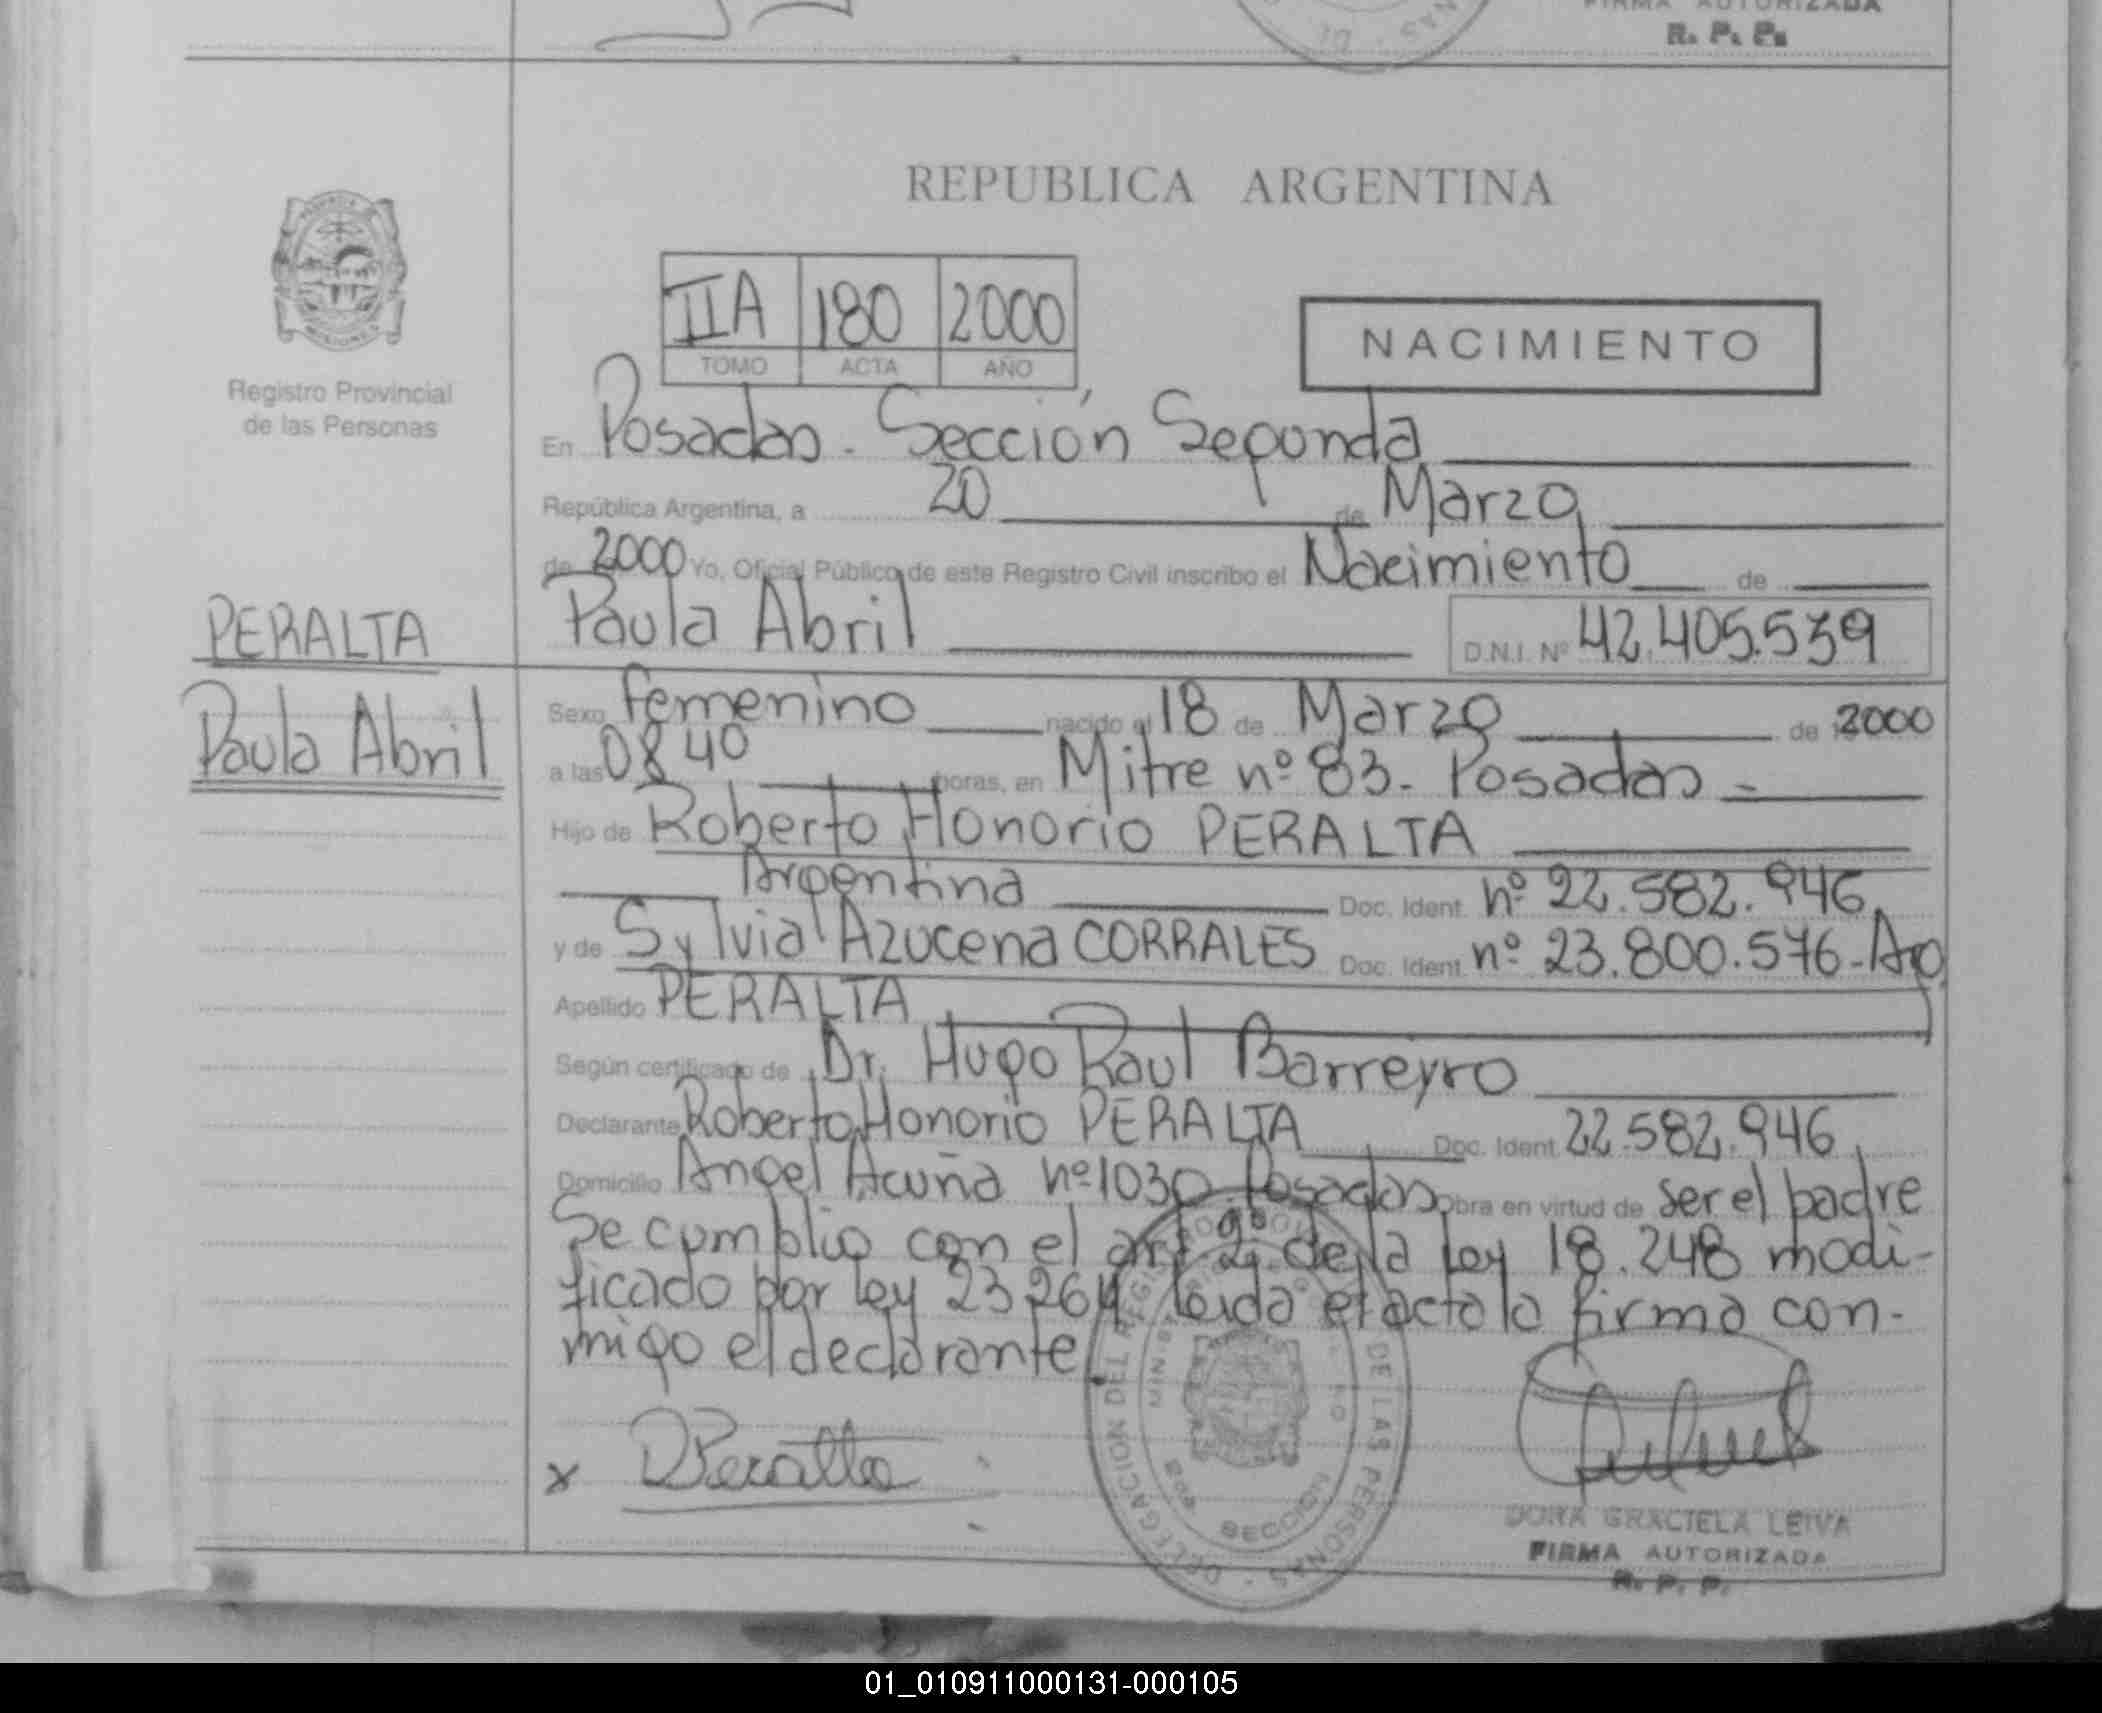 FIRMA AUTORIZADA
R. P. P.
REPUBLICA ARGENTINA
IIA 180 2000
TOMO ACTA AÑO
NACIMIENTO
Registro Provincial
de las Personas
En Posadas - Sección Segunda
República Argentina, a 20 de Marzo
de 2000 Yo, Oficial Público de este Registro Civil inscribo el Nacimiento de
PERALTA
Paula Abril
Paula Abril D.N.I. Nº 42.405.539
Sexo femenino nacido el 18 de Marzo de 2000
a las 08 40 horas, en Mitre nº 83 - Posadas -
Hijo de Roberto Honorio PERALTA
Argentina Doc. Ident. nº 22.582.946
y de Sylvia Azucena CORRALES Doc. Ident. nº 23.800.576 - Arg
Apellido PERALTA
Según certificado de Dr. Hugo Raul Barreyro
Declarante Roberto Honorio PERALTA Doc. Ident. 22.582.946
Domicilio Angel Acuña nº 1030 Posadas Obra en virtud de ser el padre
Se cumplio con el art 2º de la ley 18.248 modi-
ficado por ley 23264 leida el acta la firma con-
migo el declarante
x RPeralta
DELEGACION DEL REGISTRO DE LAS PERSONAS
SECCION 2DA
DORA GRACIELA LEIVA
FIRMA AUTORIZADA
R. P. P.
01_010911000131-000105